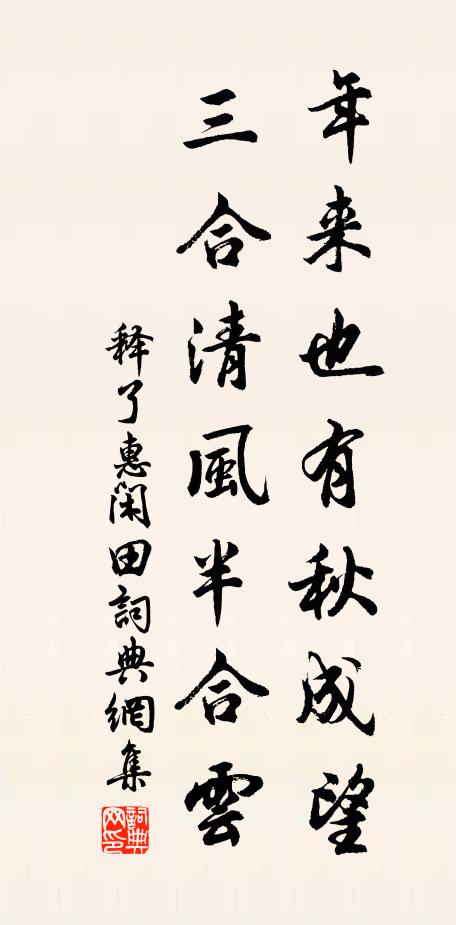 年来也有秋成望
三合清風半合雲
释了惠閑田詞典網集
詞典網印